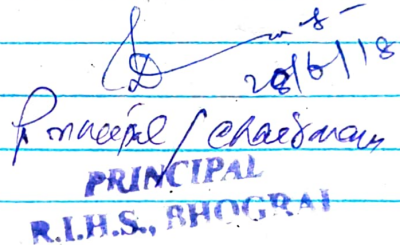 28/6/18
Principal / Chairman
PRINCIPAL
R.I.H.S., BHOGRAI